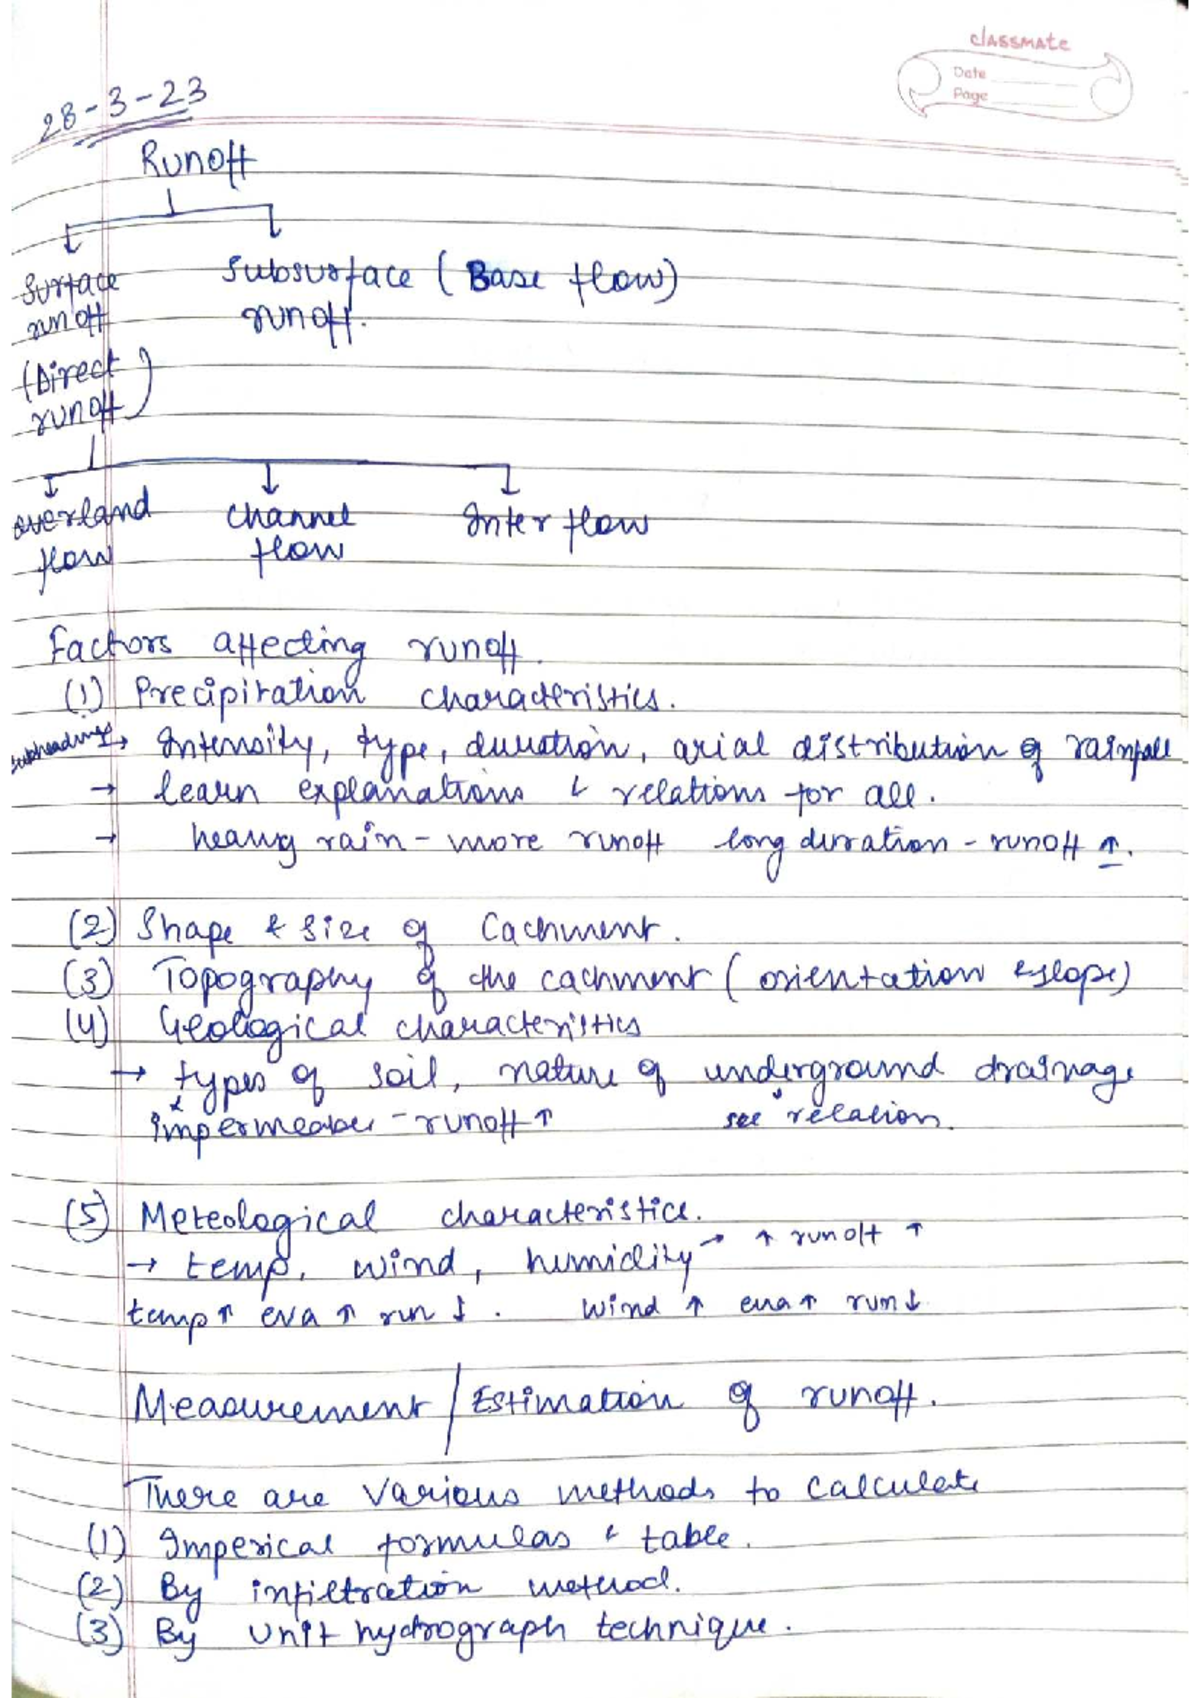 classmate
Date
Page
28-3-23
Runoff
Surface Subsurface (Base flow)
runoff runoff.
(Direct
runoff)
overland channel Interflow
flow flow
Factors affecting runoff.
(1) Precipitation characteristics.
subheadings → Intensity, type, duration, arial distribution of rainfall
→ learn explanations & relations for all.
→ heavy rain - more runoff long duration - runoff ↑.
(2) Shape & size of Cachment.
(3) Topography of the cachment (orientation & slope)
(4) Geological characteristics
→ types of soil, nature of underground drainage
impermeable - runoff ↑ see relation.
(5) Meteological characteristics.
→ temp, wind, humidity → ↑ runoff ↑
temp ↑ eva ↑ run ↓. wind ↑ eva ↑ run ↓
Measurement / Estimation of runoff.
There are various methods to calculate
(1) Imperical formulas & table.
(2) By infiltration method.
(3) By Unit hydrograph technique.